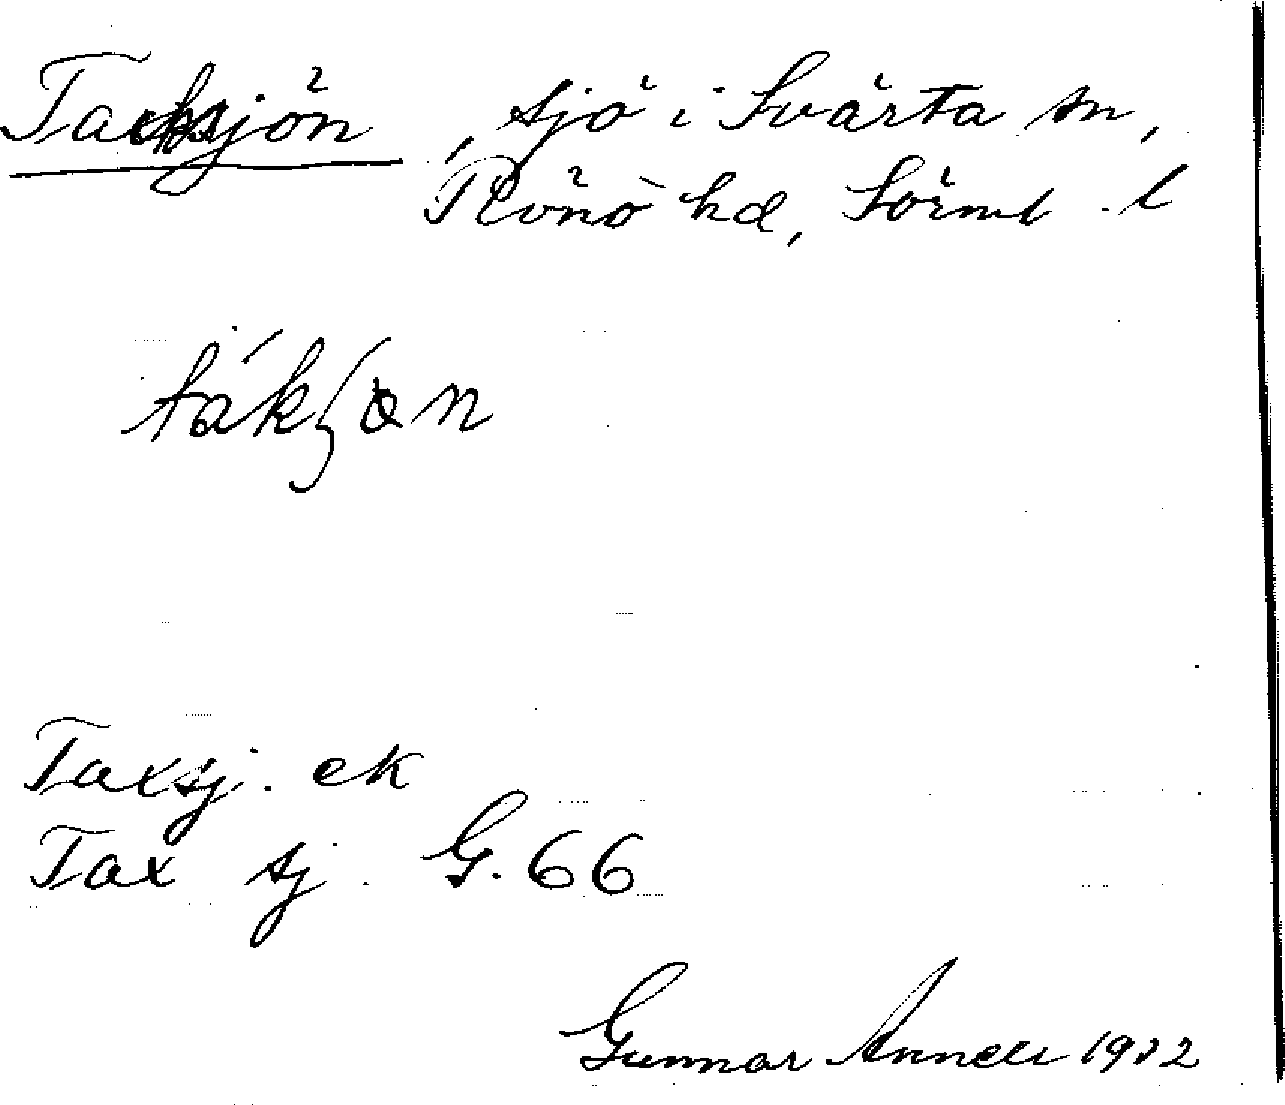 Tacksjön, sjö i Svärta sn,
Rönö hd, Sörml. l
ták∫ɵn
Taxsj. ek
Tax sj. G. 66
Gunnar Annell 1932